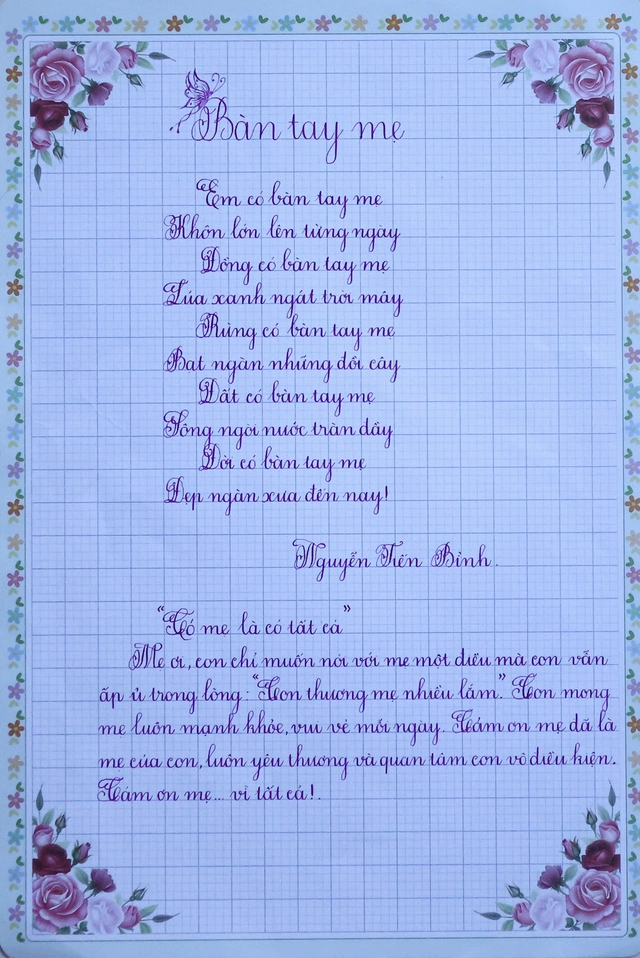 Bàn tay mẹ
Em có bàn tay mẹ
Khôn lớn lên từng ngày
Đồng có bàn tay mẹ
Lúa xanh ngát trời mây
Rừng có bàn tay mẹ
Bạt ngàn những đồi cây
Đất có bàn tay mẹ
Sông ngòi nước tràn đầy
Đời có bàn tay mẹ
Đẹp ngàn xưa đến nay!
Nguyễn Tiến Bình.
"Có mẹ là có tất cả"
Mẹ ơi, con chỉ muốn nói với mẹ một điều mà con vẫn
ấp ủ trong lòng: "Con thương mẹ nhiều lắm." Con mong
mẹ luôn mạnh khỏe, vui vẻ mỗi ngày. Cám ơn mẹ đã là
mẹ của con, luôn yêu thương và quan tâm con vô điều kiện.
Cám ơn mẹ... vì tất cả!.